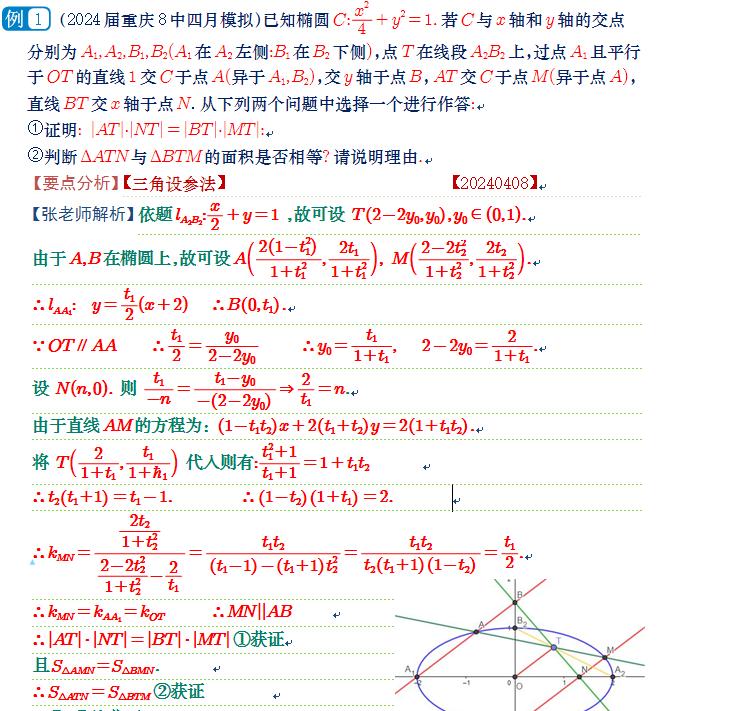 例1 (2024届重庆8中四月模拟)已知椭圆C:x²/4+y²=1.若C与x轴和y轴的交点
分别为A₁,A₂,B₁,B₂(A₁在A₂左侧:B₁在B₂下侧),点T在线段A₂B₂上,过点A₁且平行
于OT的直线1交C于点A(异于A₁,B₂),交y轴于点B,AT交C于点M(异于点A),
直线BT交x轴于点N.从下列两个问题中选择一个进行作答:
①证明: |AT|·|NT|=|BT|·|MT|:
②判断ΔATN与ΔBTM的面积是否相等?请说明理由.
【要点分析】【三角设参法】 【20240408】
【张老师解析】依题l_{A₂B₂}:x/2+y=1 ,故可设 T(2-2y₀,y₀),y₀∈(0,1).
由于A,B在椭圆上,故可设A(2(1-t₁²)/(1+t₁²),2t₁/(1+t₁²)), M((2-2t₂²)/(1+t₂²),2t₂/(1+t₂²)).
∴l_{AA₁}: y=t₁/2(x+2) ∴B(0,t₁).
∵OT∥AA ∴t₁/2=y₀/(2-2y₀) ∴y₀=t₁/(1+t₁), 2-2y₀=2/(1+t₁).
设 N(n,0). 则 t₁/(-n)=(t₁-y₀)/(-(2-2y₀))⇒2/t₁=n.
由于直线AM的方程为: (1-t₁t₂)x+2(t₁+t₂)y=2(1+t₁t₂).
将 T(2/(1+t₁),t₁/(1+ħ₁)) 代入则有:(t₁²+1)/(t₁+1)=1+t₁t₂
∴t₂(t₁+1)=t₁-1. ∴(1-t₂)(1+t₁)=2.
∴k_{MN}=(2t₂/(1+t₂²))/((2-2t₂²)/(1+t₂²)-2/t₁)=t₁t₂/((t₁-1)-(t₁+1)t₂²)=t₁t₂/(t₂(t₁+1)(1-t₂))=t₁/2.
∴k_{MN}=k_{AA₁}=k_{OT} ∴MN||AB
∴|AT|·|NT|=|BT|·|MT|①获证
且S_{△AMN}=S_{△BMN}.
∴S_{△ATN}=S_{△BTM}②获证
B
B₂
A
T
M
A₁
O
N
A₂
-2
-1
1
2